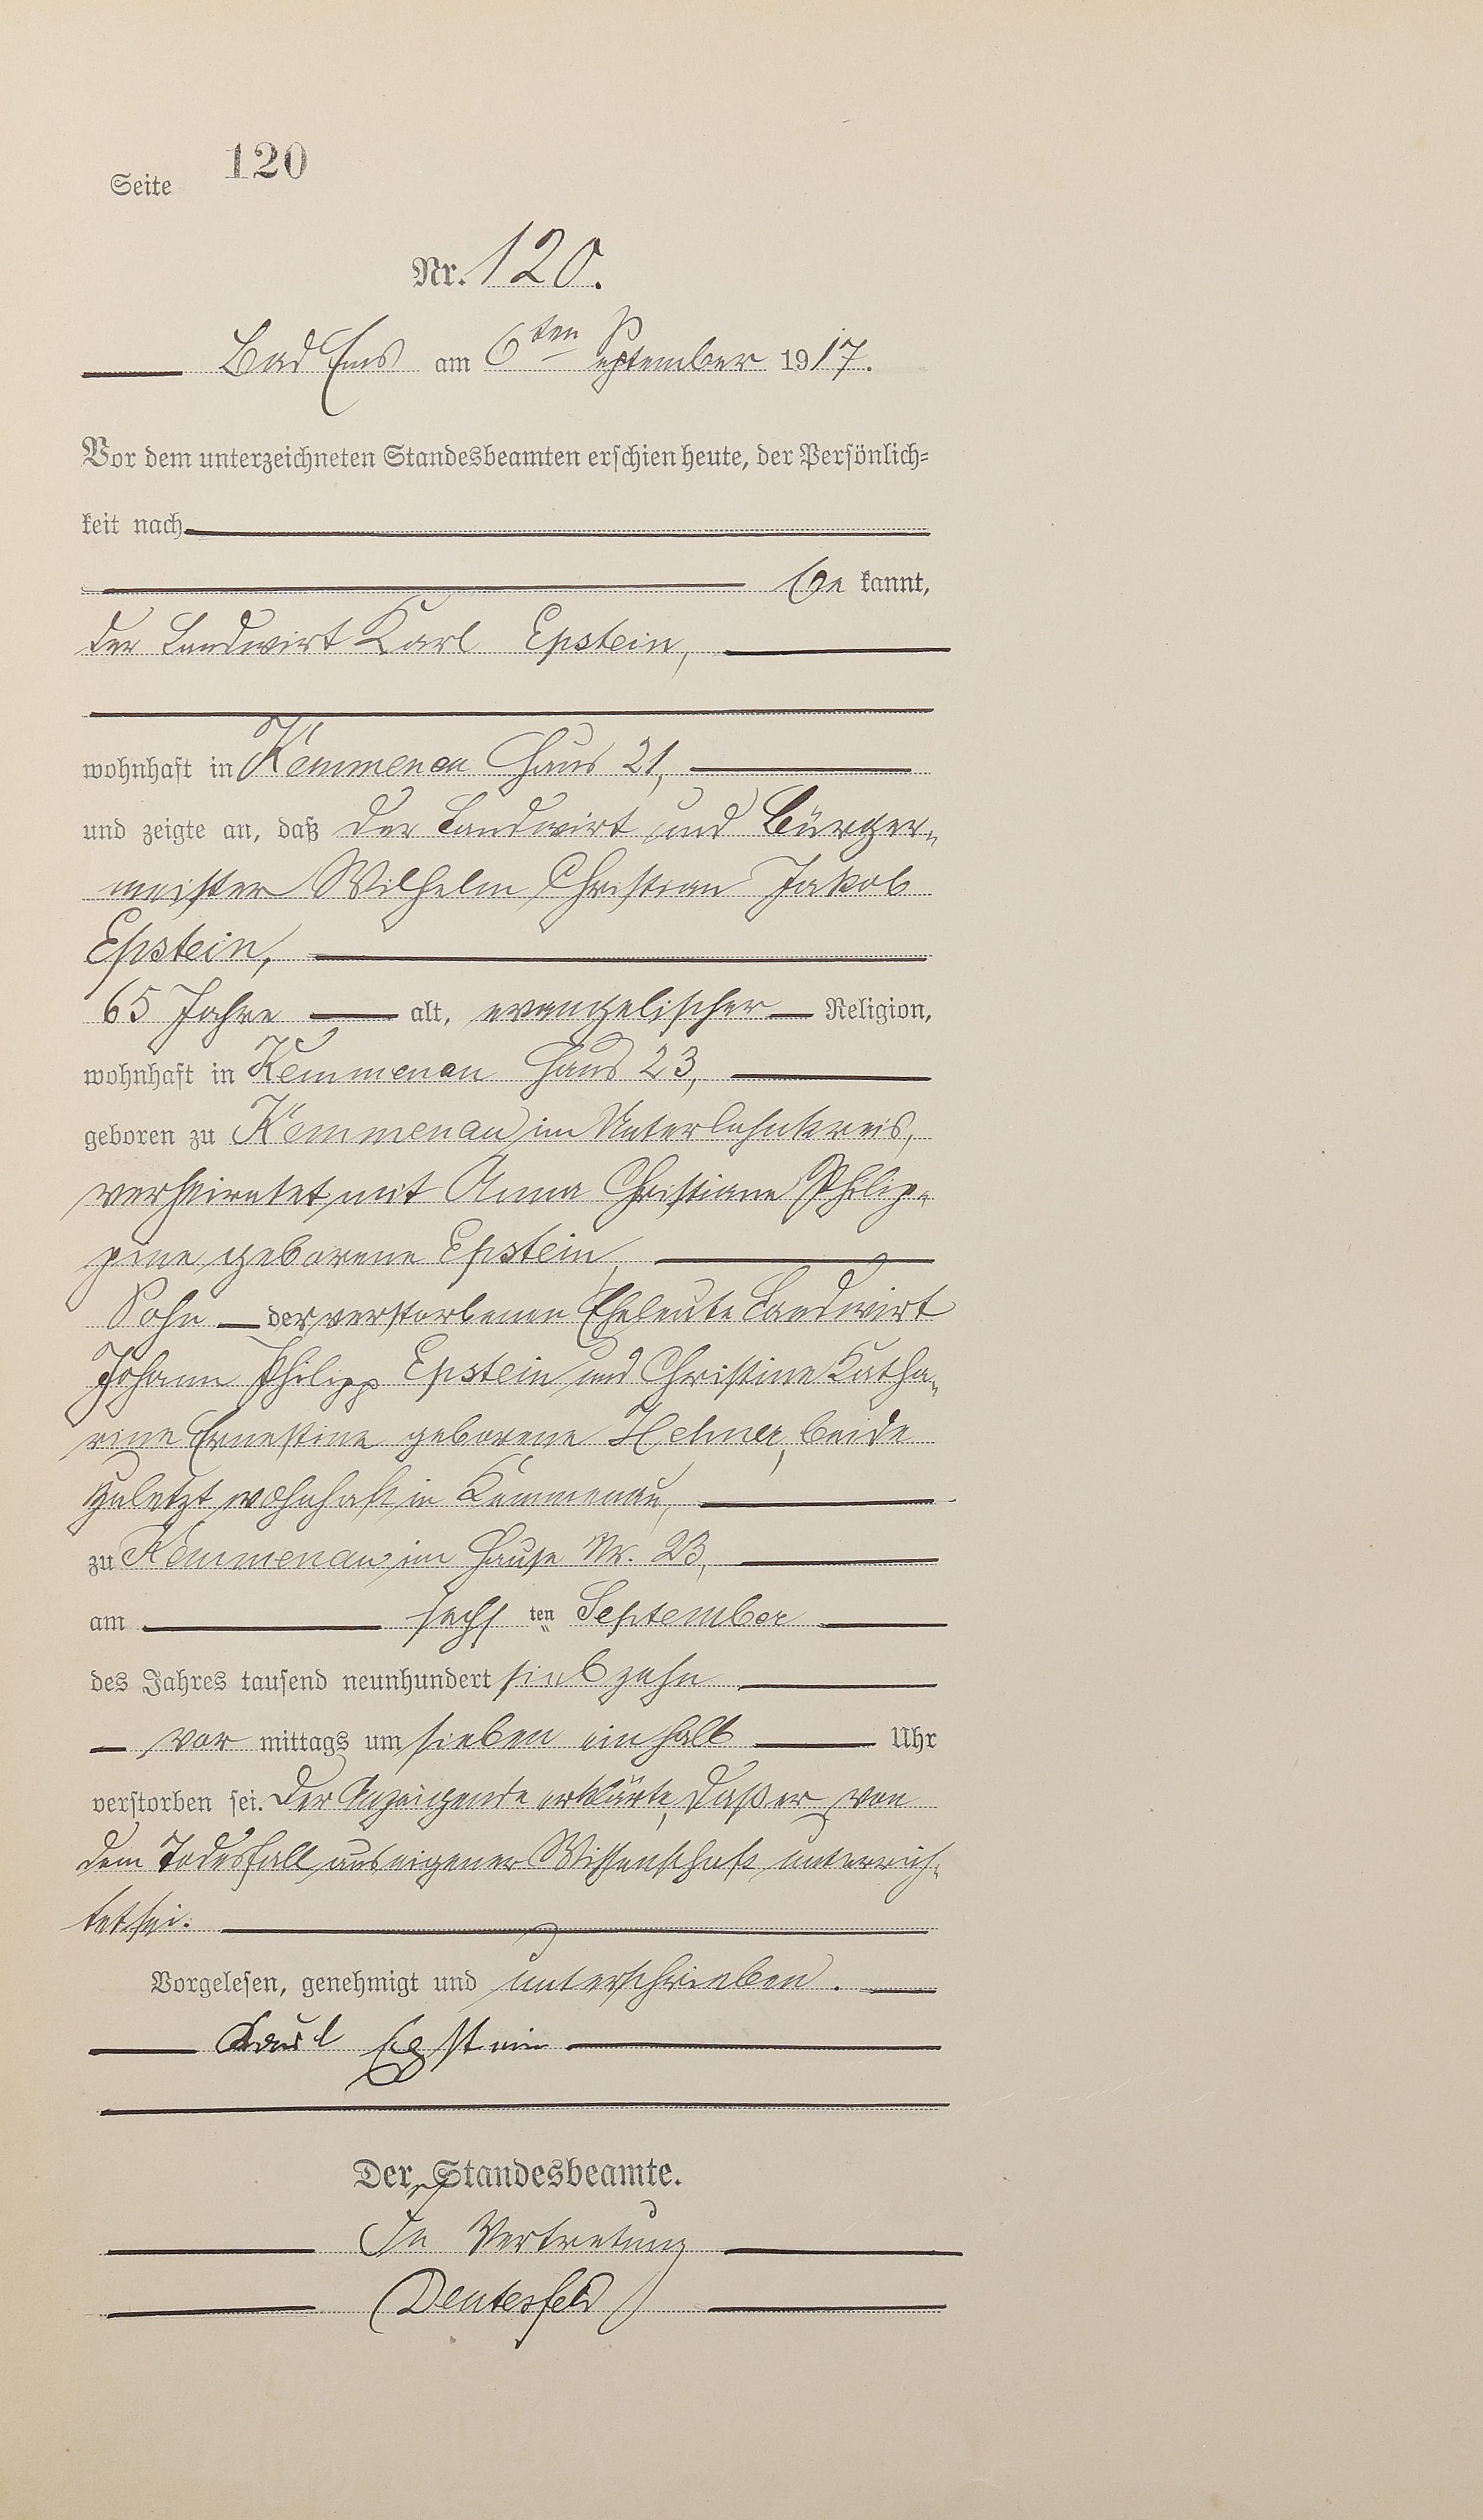 Seite 120
Nr. 120.
Bad Ems am 6ten September 1917.
Vor dem unterzeichneten Standesbeamten erschien heute, der Persönlich-
keit nach
be kannt,
der Landwirt Karl Epstein,
wohnhaft in Kemmenau Haus 21,
und zeigte an, daß der Landwirt und Bürger-
meister Wilhelm Christian Jakob
Epstein,
65 Jahre alt, evangelischer Religion,
wohnhaft in Kemmenau Haus 23,
geboren zu Kemmenau im Unterlahnkreis,
verheiratet mit Anna Christiane Philip-
pine geborene Epstein,
Sohn der verstorbenen Eheleute Landwirt
Johann Philipp Epstein und Christine Katha-
rine Ernestine geborene Hehner, beide
zuletzt wohnhaft in Kemmenau,
zu Kemmenau im Hause Nr. 23,
am sechs ten September
des Jahres tausend neunhundert siebzehn
vor mittags um sieben einhalb Uhr
verstorben sei. Der Anzeigende erklärte, daß er von
dem Todesfall aus eigener Wissenschaft unterrich-
tet sei.
Vorgelesen, genehmigt und unterschrieben.
Karl Epstein
Der Standesbeamte.
In Vertretung
Deutesfeld